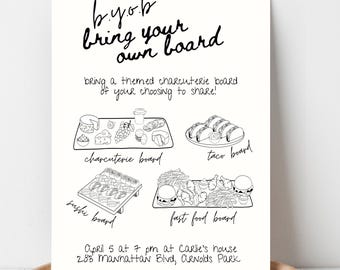 b.y.o.b
bring your
own board
bring a themed charcuterie board
of your choosing to share!
charcuterie board
taco board
sushi board
fast food board
April 5 at 7 pm at Carlie's house
288 Manhattan Blvd, Arnolds Park